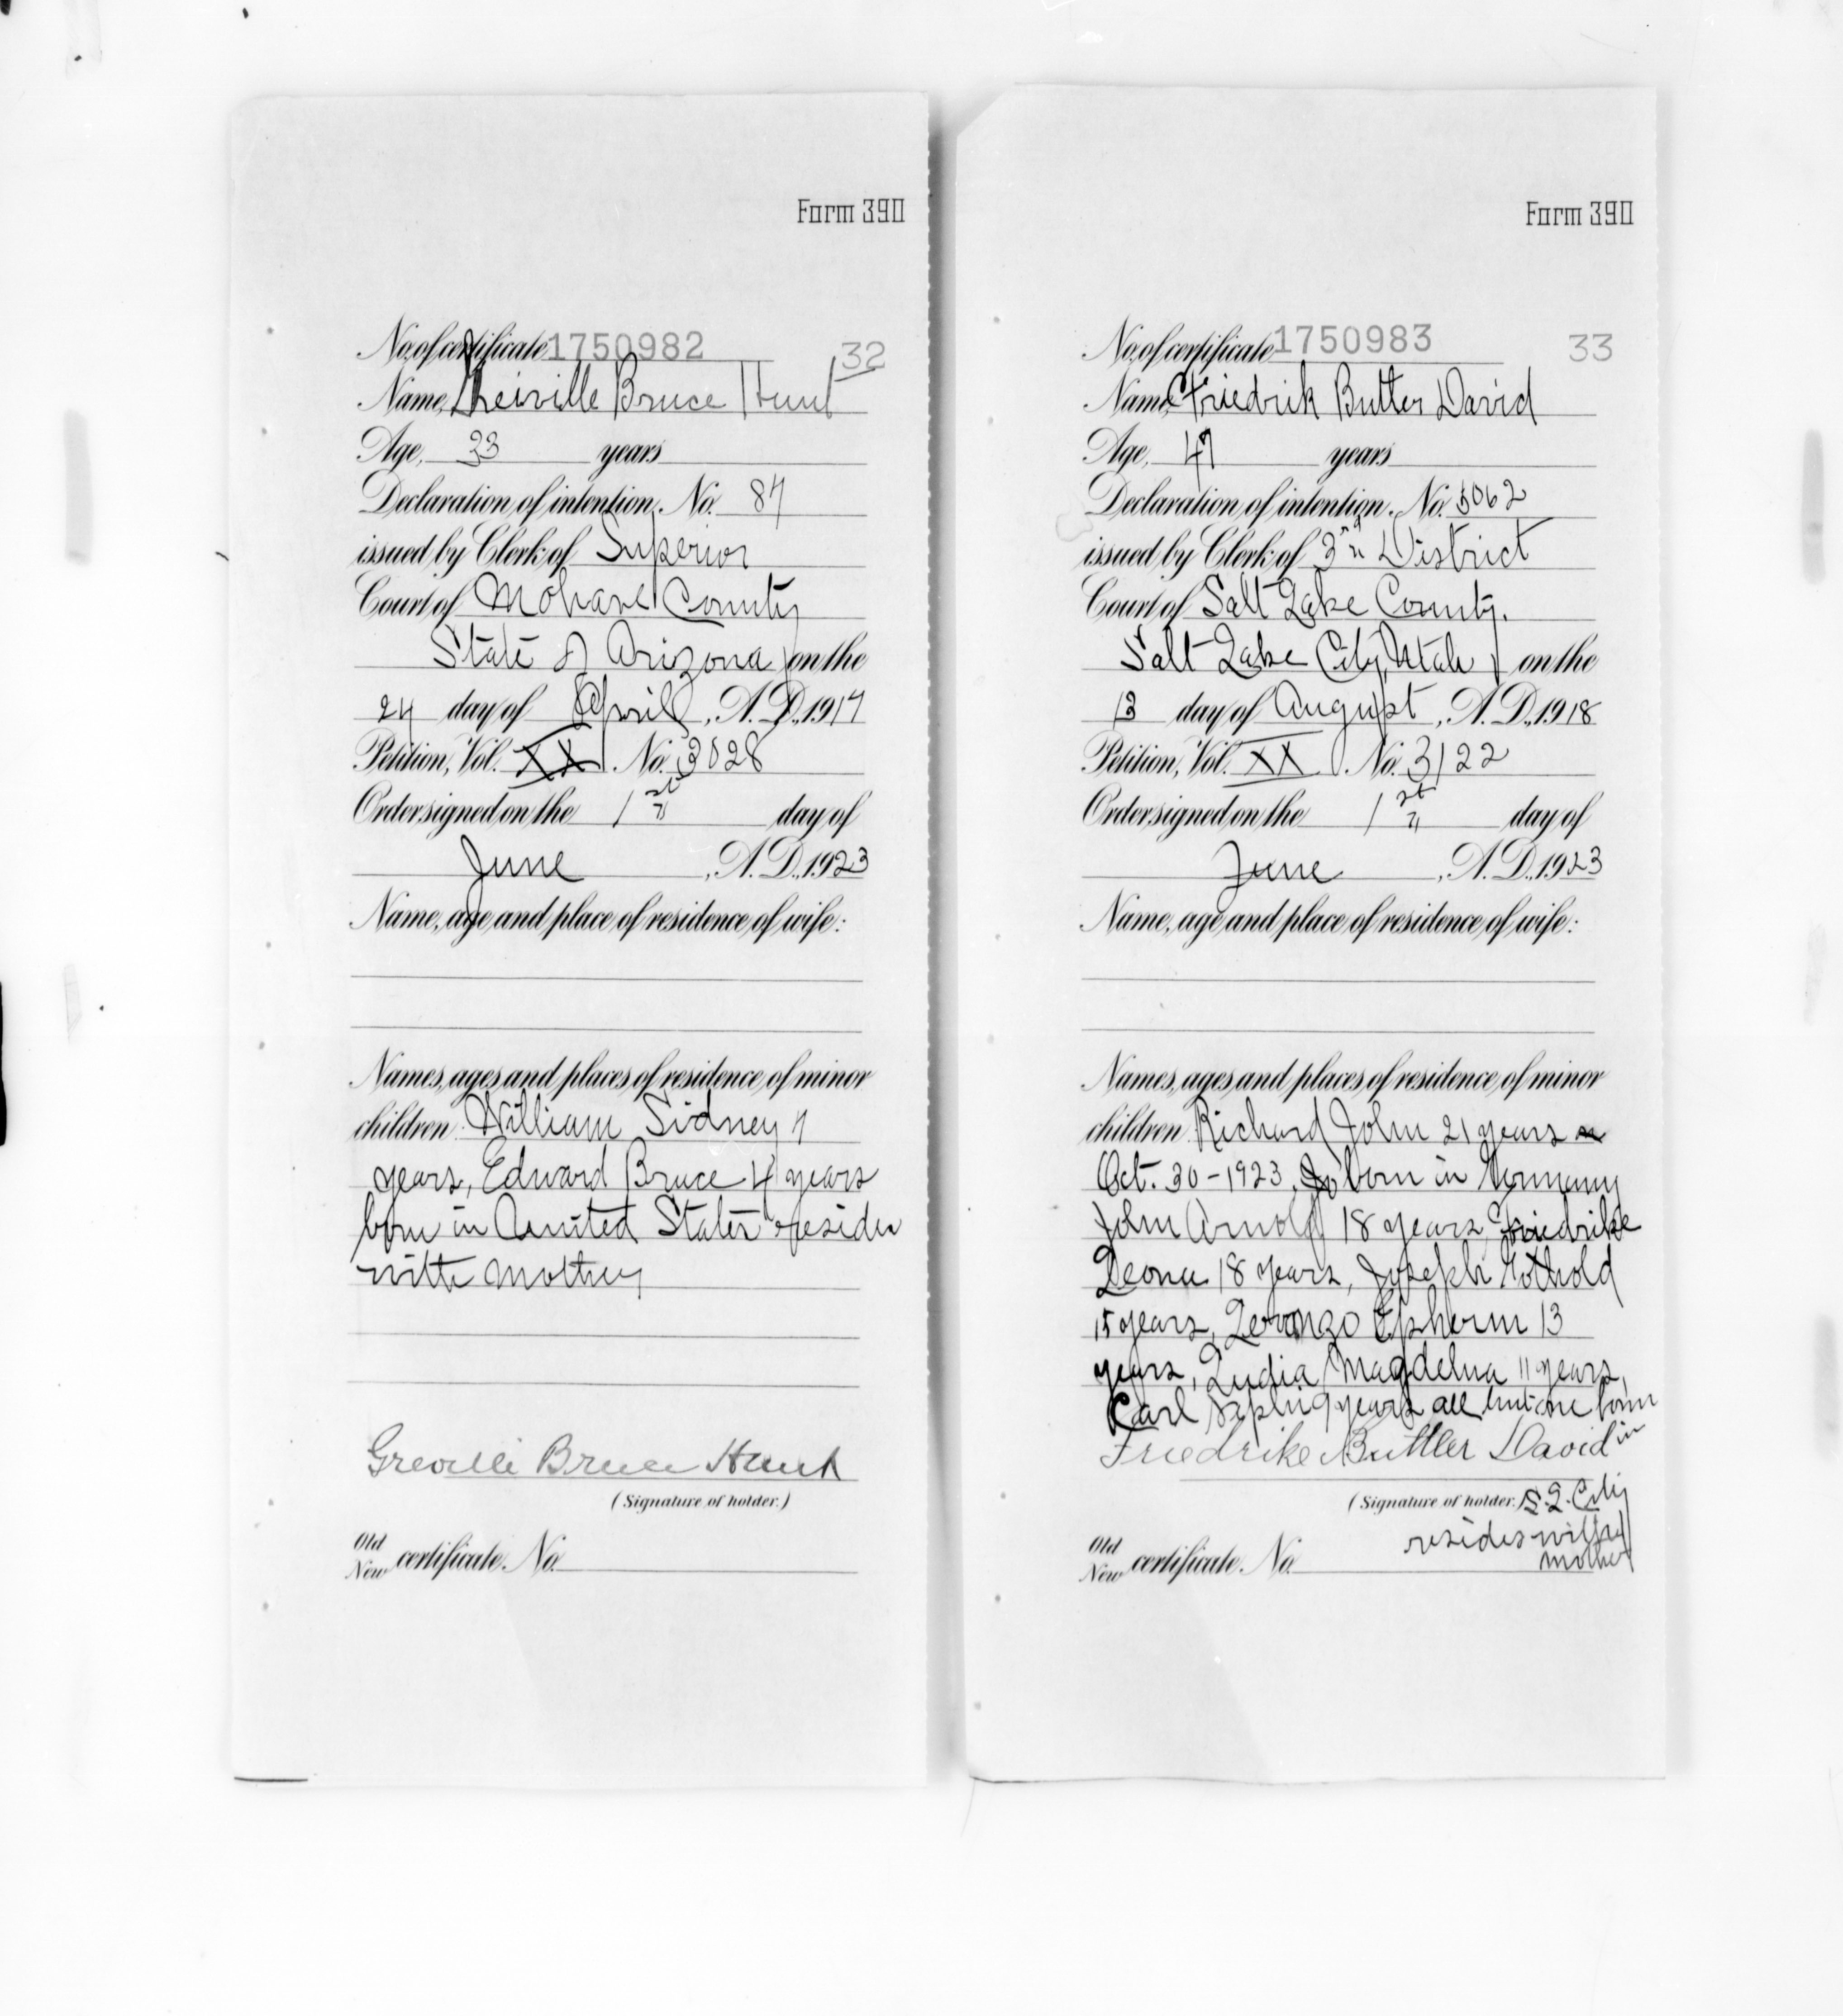 Form 390
No. of certificate 1750982 32
Name, Greiville Bruce Hunt
Age, 33 years
Declaration of intention, No. 87
issued by Clerk of Superior
Court of Mohave County
State of Arizona, on the
24 day of April, A. D., 1917
Petition, Vol. XX. No. 3028
Order signed on the 1st day of
June, A. D., 1923
Name, age and place of residence of wife:
Names, ages and places of residence of minor
children: William Sidney 7
years, Edward Bruce 4 years
born in United States resides
with mother
Greville Bruce Hunt
(Signature of holder.)
Old
New certificate, No.
Form 390
No. of certificate 1750983 33
Name, Friedrik Butler David
Age, 47 years
Declaration of intention, No. 5062
issued by Clerk of 3rd District
Court of Salt Lake County.
Salt Lake City, Utah, on the
13 day of August, A. D., 1918
Petition, Vol. XX. No. 3122
Order signed on the 1st day of
June, A. D., 1923
Name, age and place of residence of wife:
Names, ages and places of residence of minor
children: Richard John 21 years
Oct. 30-1923, born in Germany
John Arnold 18 years, Friedrike
Leona 18 years, Joseph Gothold
15 years, Lorenzo Epherm 13
years, Lydia Magdelna 11 years,
Carl 9 years all but one born
Friedrike Buttler David in
(Signature of holder.) S. L. City
resides with
mother
Old
New certificate, No.